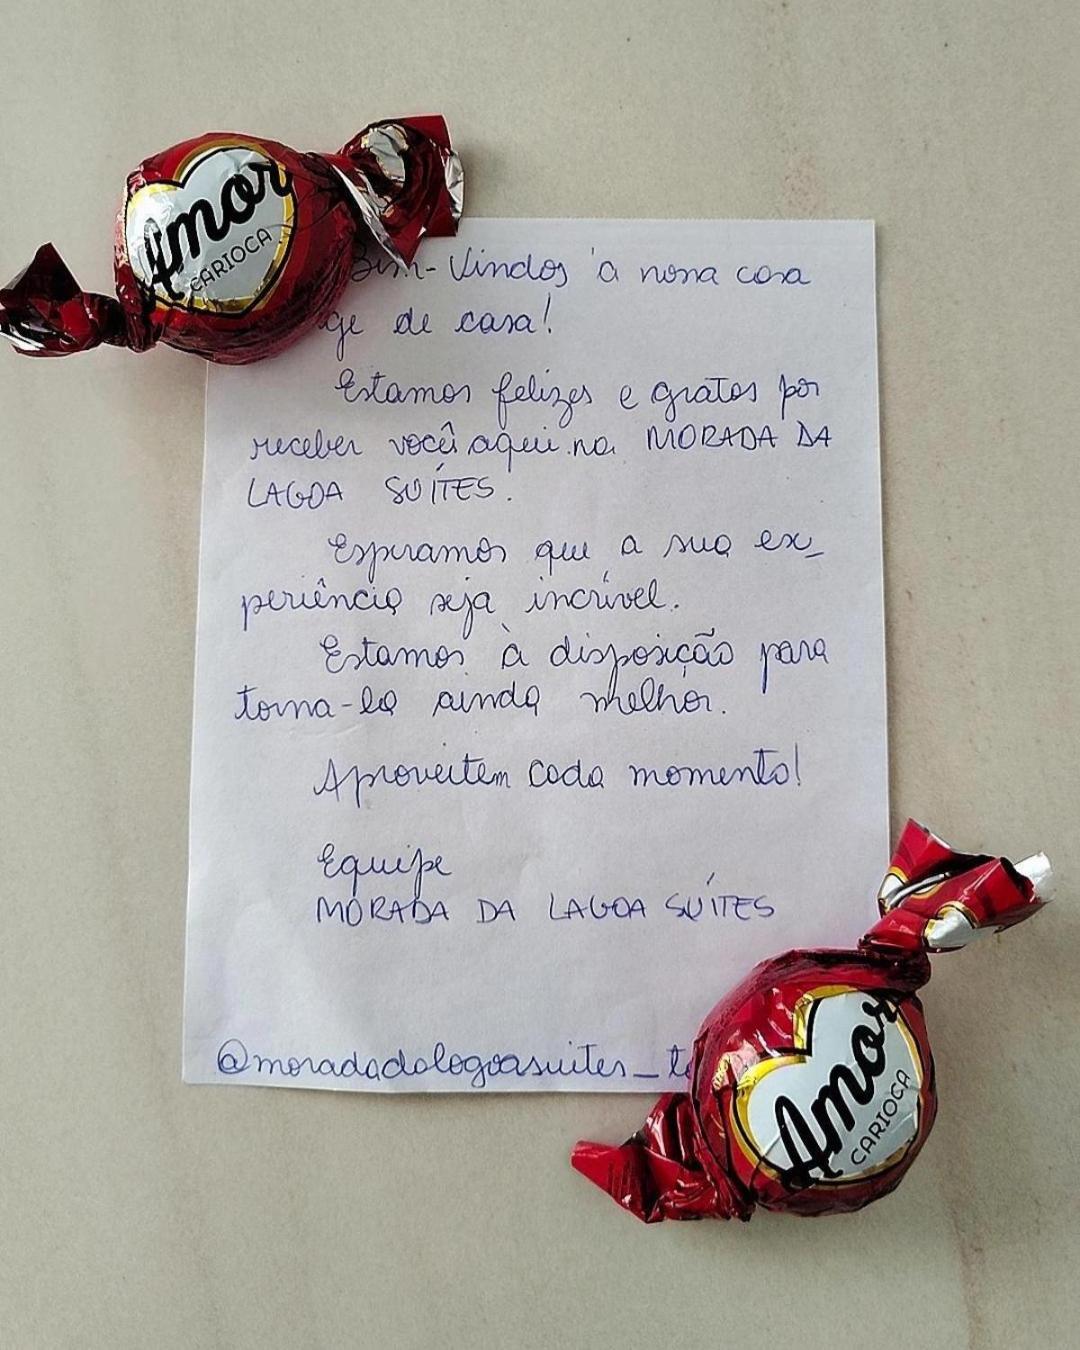 Amor
CARIOCA
Bem-Vindos à nossa casa
ge de casa!
Estamos felizes e gratos por
receber você aqui na MORADA DA
LAGOA SUÍTES.
Esperamos que a sua ex_
periência seja incrível.
Estamos à disposição para
torna-la ainda melhor.
Aproveitem cada momento!
Equipe
MORADA DA LAGOA SUÍTES
@moradadalagoasuites_t
Amor
CARIOCA